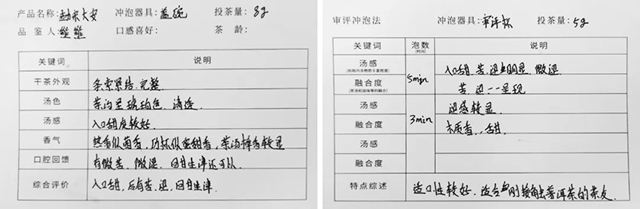 产品名称: 冲泡器具: 盖碗 投茶量: 8g
品鉴人: 口感喜好: 茶龄:
关键词 说明
干茶外观 条索紧结、完整
汤色 茶汤呈琥珀色、清透
汤感 入口甜度较好
香气
口腔回馈 有微苦、微涩、回甘生津还可以
综合评价 入口甜、后有苦、涩、回甘生津
审评冲泡法 冲泡器具: 审评杯 投茶量: 5g
关键词 泡数 说明
汤感 5min 入口甜、苦、涩明显、微涩
融合度 苦、涩一一呈现
汤感 3min 涩感较显
融合度 木质香、甜
汤感
融合度
特点综述 适口性较好、适合刚接触普洱茶的茶友